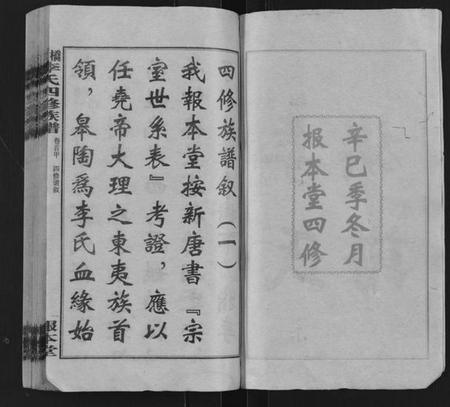 辛巳季冬月
报本堂四修
四修族譜叙（一）
我報本堂按新唐書『宗
室世系表』考證，應以
任堯帝大理之東夷族首
領，皋陶為李氏血緣始
橋李氏四修族譜
卷首甲 四修譜叙
報本堂